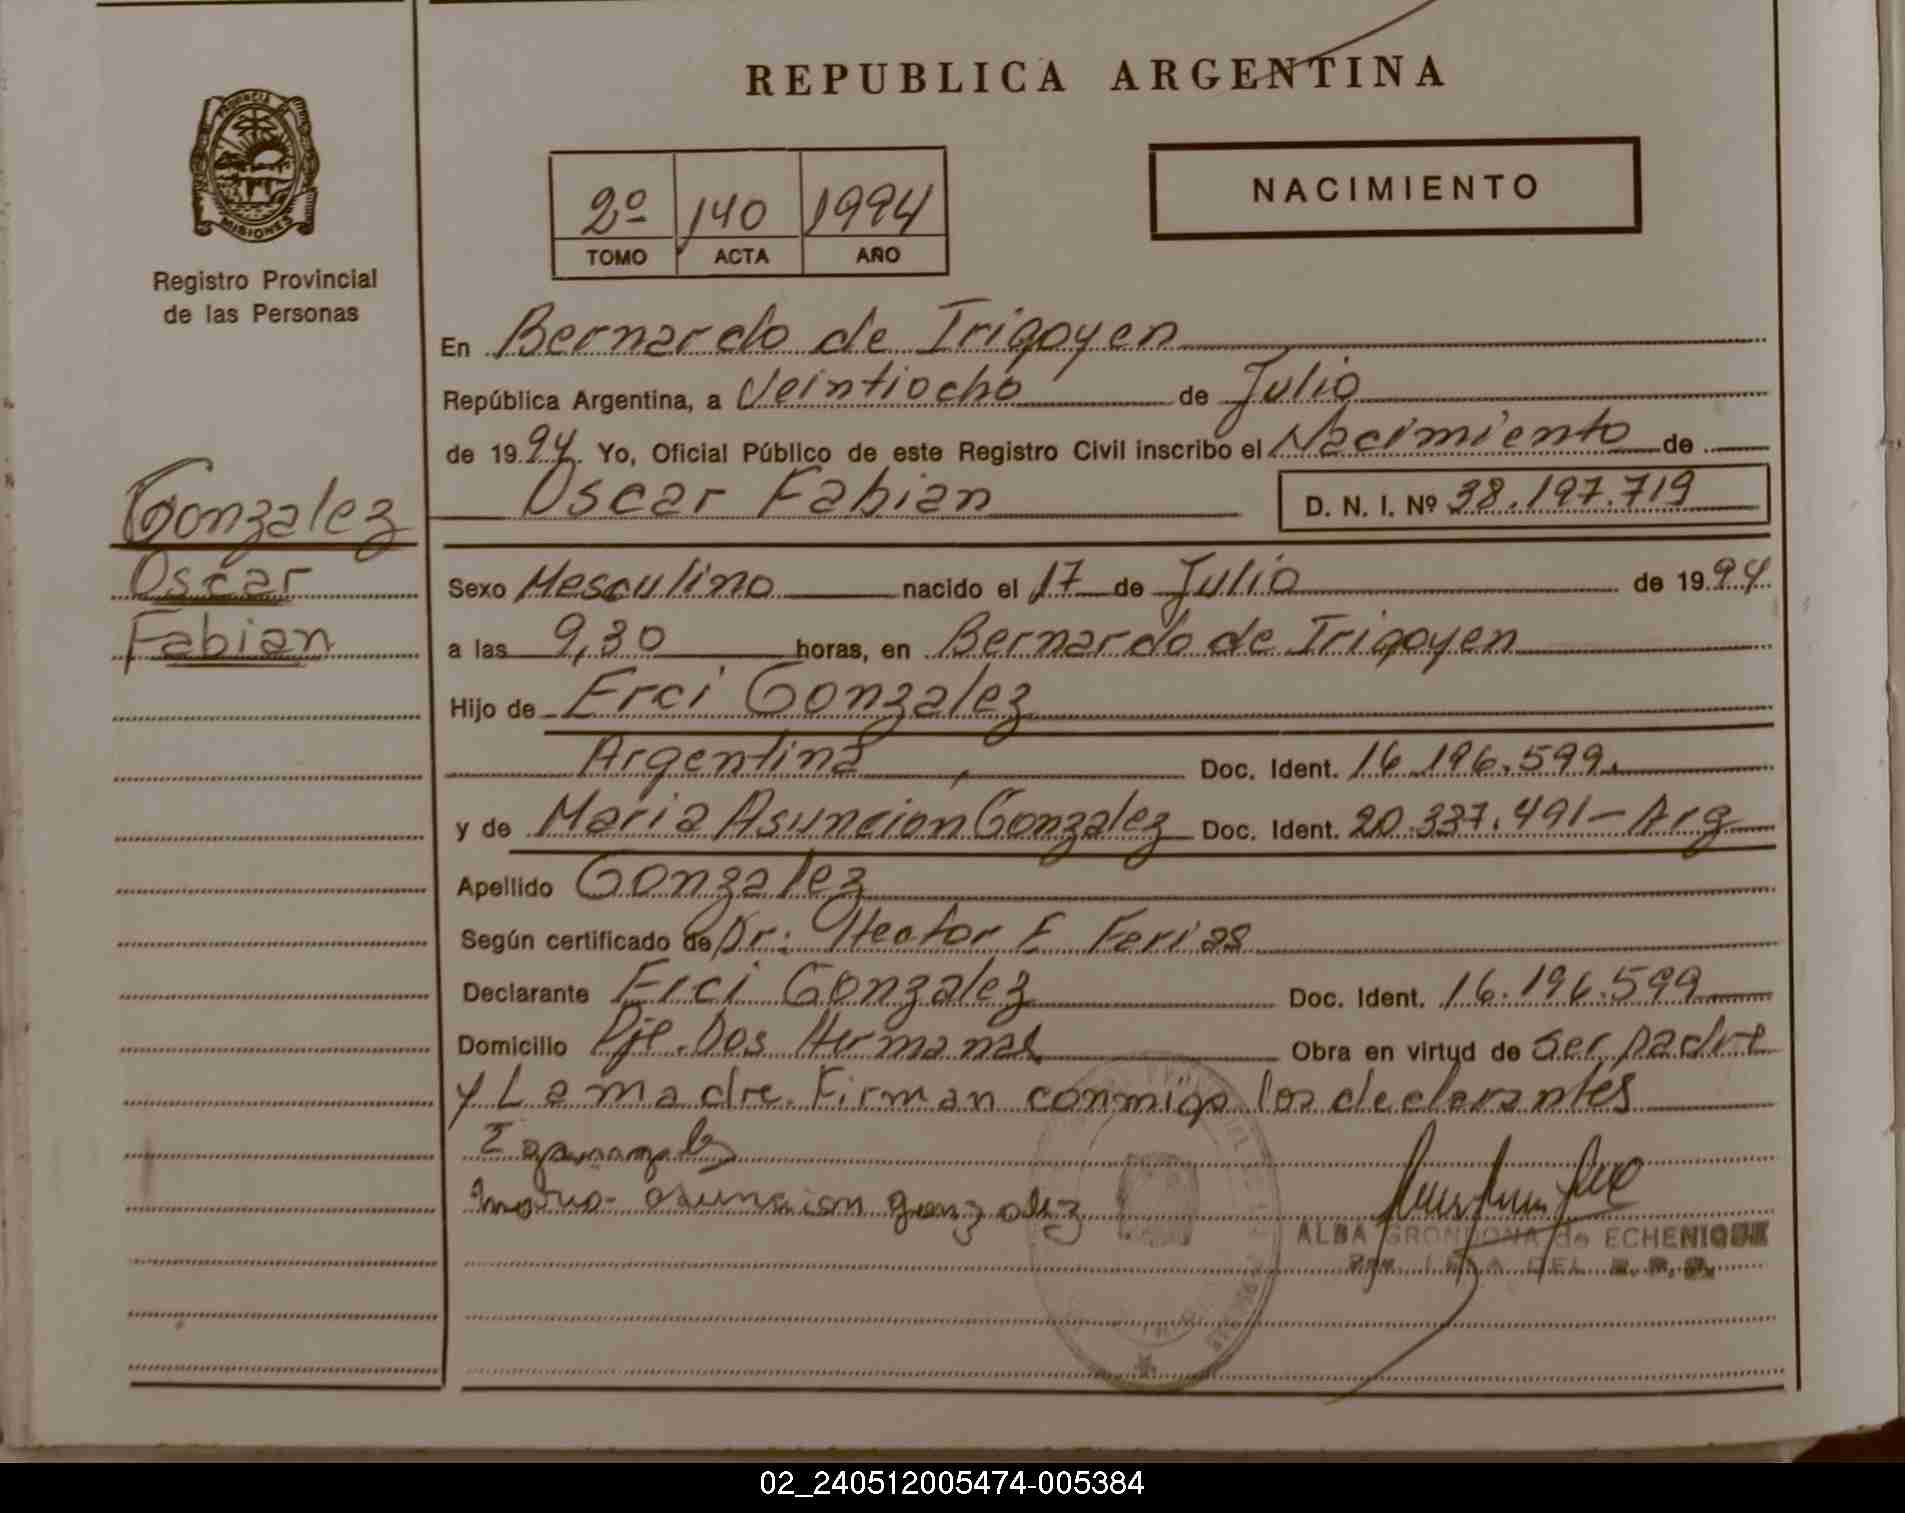 REPUBLICA ARGENTINA
PROVINCIA DE
MISIONES
Registro Provincial
de las Personas
2º 140 1994
TOMO ACTA AÑO
NACIMIENTO
En Bernardo de Irigoyen
República Argentina, a Veintiocho de Julio
de 1994. Yo, Oficial Público de este Registro Civil inscribo el Nacimiento de
Oscar Fabian D. N. I. Nº 38.197.719
Gonzalez
Oscar
Fabian
Sexo Mesculino nacido el 17 de Julio de 1994
a las 9,30 horas, en Bernardo de Irigoyen
Hijo de Erci Gonzalez
Argentina Doc. Ident. 16.196.599.
y de Maria Asuncion Gonzalez Doc. Ident. 20.337.491- Arg
Apellido Gonzalez
Según certificado de Dr: Hector E Ferias
Declarante Erci Gonzalez Doc. Ident. 16.196.599
Domicilio Pje. Dos Hermanas Obra en virtud de ser padre
y La madre. Firman conmigo los declarantes
maria asuncion gonzalez
ALBA GRONDONA de ECHENIQUE
02_240512005474-005384